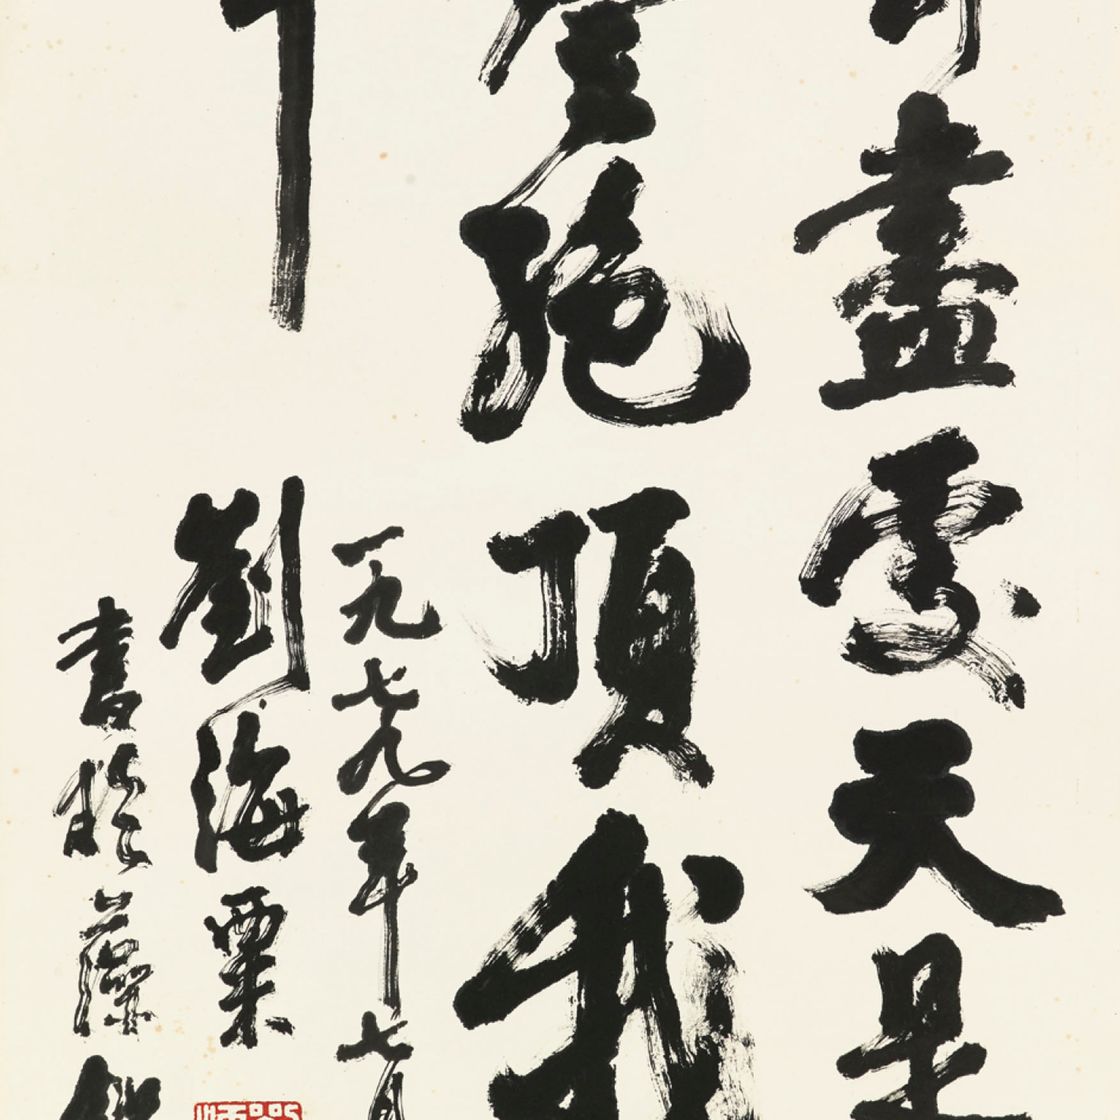 盡處天是
登絕頂我
一九七九年七月
劉海粟
書於藻鑑